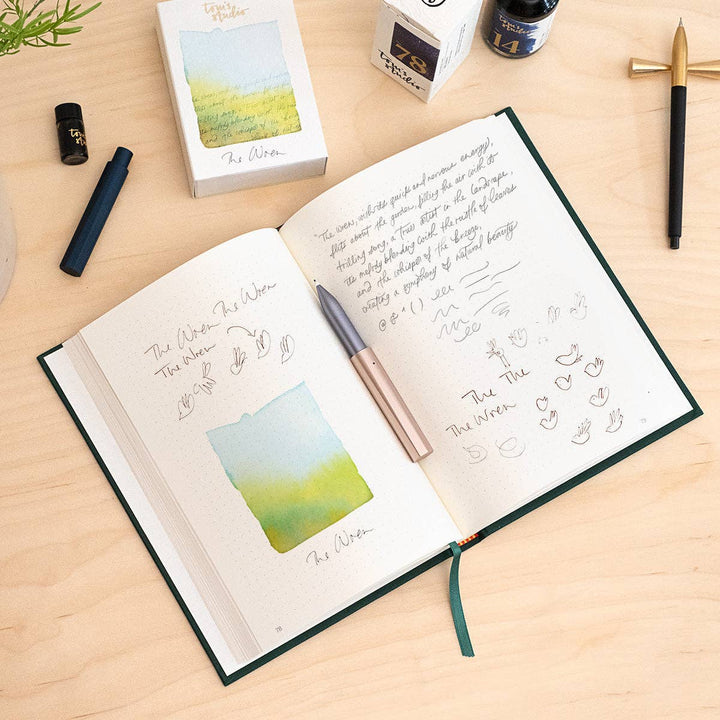 tom's
studio
The Wren
78
tom's
studio
tom's
studio
14
tom's
studio
The Wren The Wren
The Wren
The Wren
78
The wren, with its quick and nervous energy,
flits about the garden, filling the air with its
trilling song, a true artist in the landscape,
its melody blending with the rustle of leaves
and the whisper of the breeze,
creating a symphony of natural beauty
The The
The Wren
79